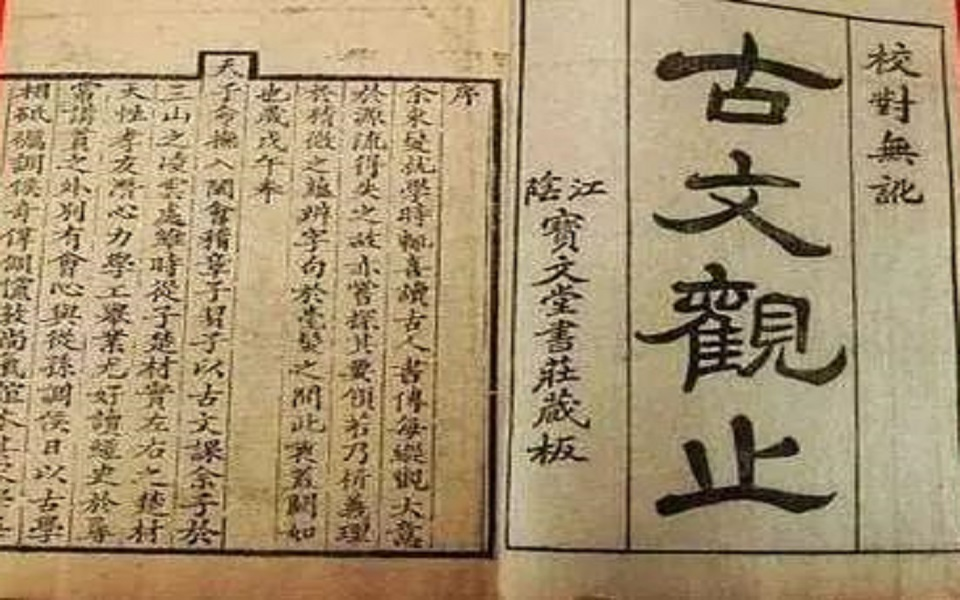 校對無訛
古文觀止
江陰
寶文堂書莊藏板
序
余束髮就學時輒喜讀古人書傳每縱觀大意
於源流得失之故亦嘗探其要領若乃析義理
於精微之蘊辨字句於毫髮之間此衷蓋闕如
也歲戊午奉
天子命撫八閩會稽章子習子以古文課余子於
三山之凌雲處維時從子楚材實左右之楚材
天性孝友潛心力學工舉業尤好讀經史於尋
常講貫之外別有會心與從孫調侯日以古學
相砥礪調侯奇偉倜儻敦尚氣誼